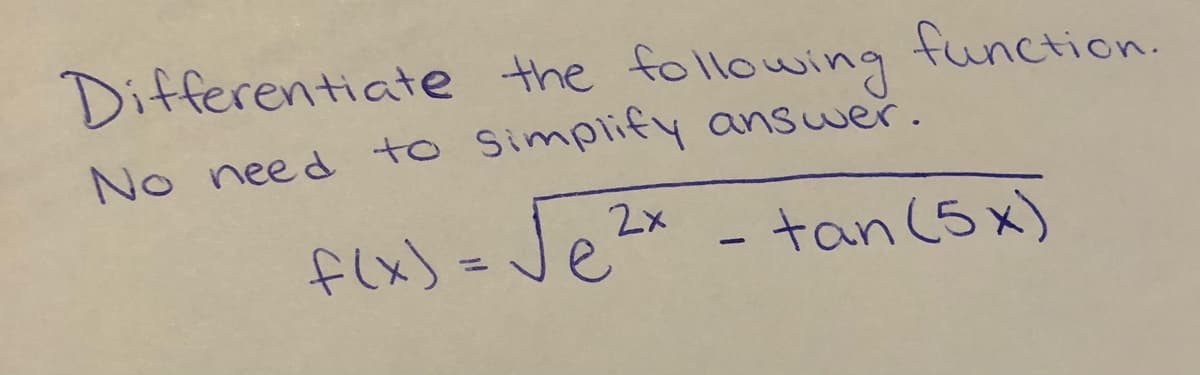 Differentiate the following function.
No need to simplify answer.
f(x) = √(e^{2x} - tan(5x))